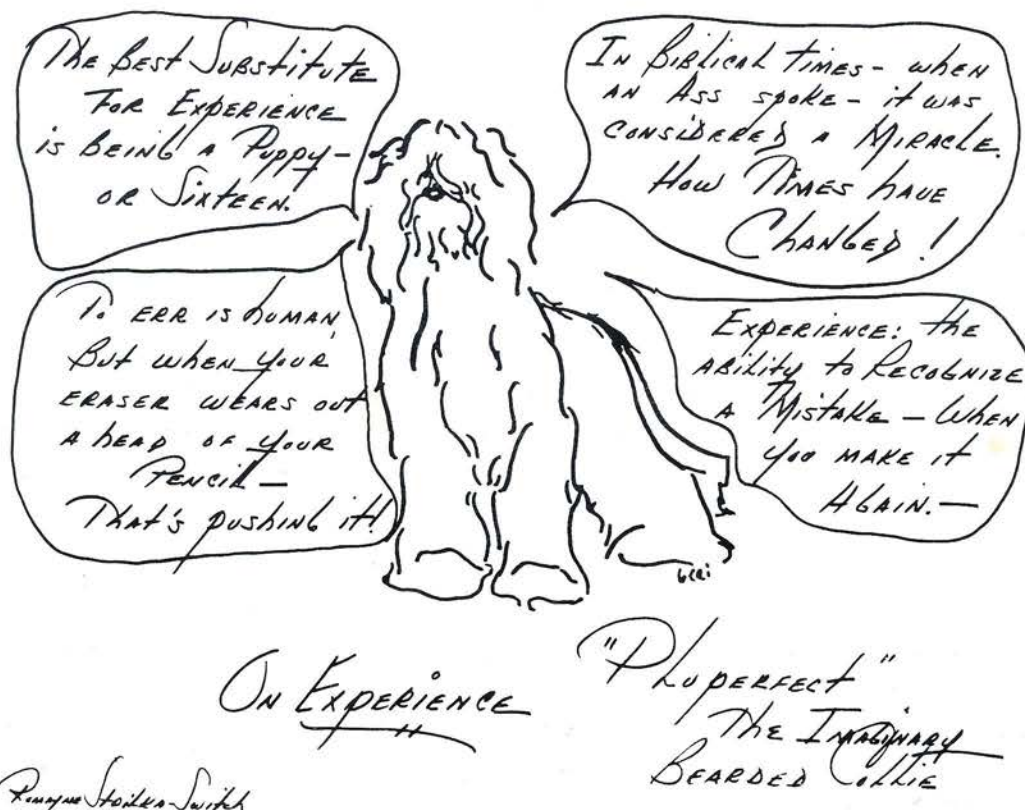 The Best Substitute
For Experience
is Being a Puppy-
or Sixteen.
In Biblical times - when
an Ass spoke - it was
considered a Miracle.
How Times have
Changed!
To err is human,
But when your
eraser wears out
a head of your
Pencil -
That's pushing it!
Experience: the
ability to Recognize
a Mistake - When
you make it
Again. -
On Experience
"Pluperfect"
The Imaginary
Bearded Collie
Romayne